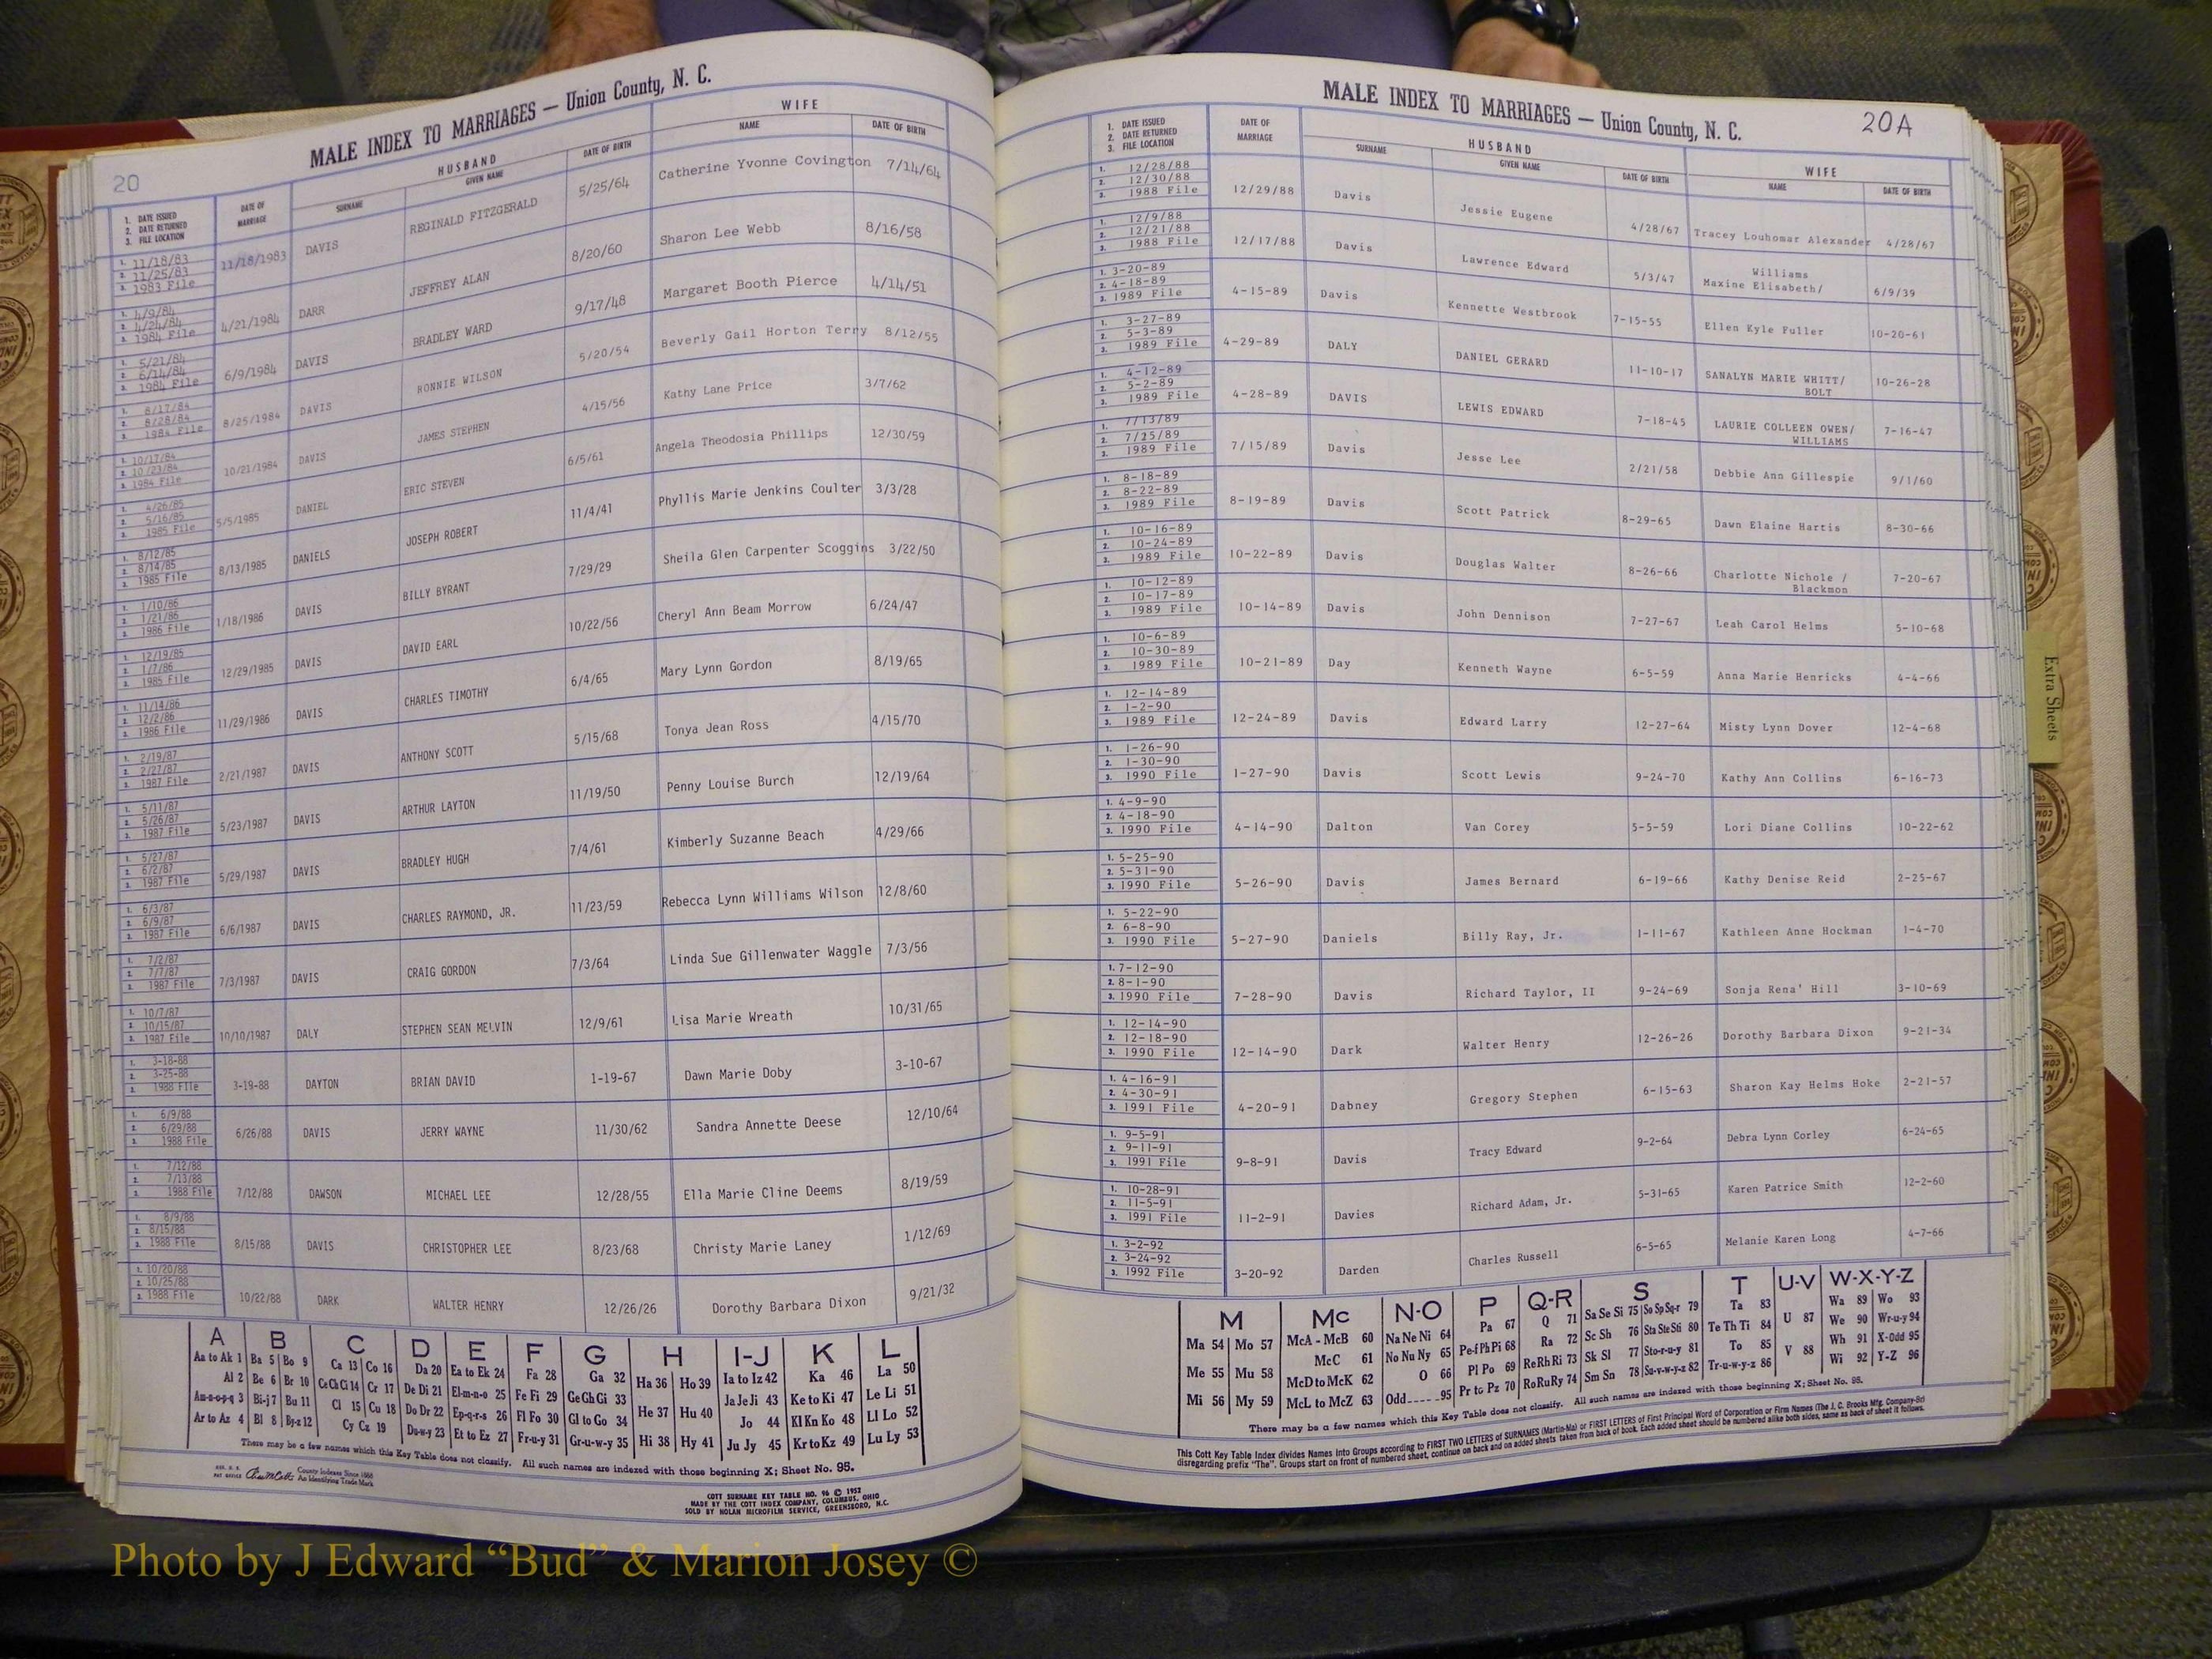 MALE INDEX TO MARRIAGES — Union County, N. C.
20
1. DATE ISSUED
2. DATE RETURNED
3. FILE LOCATION
DATE OF MARRIAGE
HUSBAND
SURNAME GIVEN NAME DATE OF BIRTH
WIFE
NAME DATE OF BIRTH
1. 11/18/83
2. 11/25/83
3. 1983 File
11/18/1983 DAVIS REGINALD FITZGERALD 5/25/64 Catherine Yvonne Covington 7/14/64
1. 4/9/84
2. 4/24/84
3. 1984 File
4/21/1984 DARR JEFFREY ALAN 8/20/60 Sharon Lee Webb 8/16/58
1. 5/21/84
2. 6/14/84
3. 1984 File
6/9/1984 DAVIS BRADLEY WARD 9/17/48 Margaret Booth Pierce 4/14/51
1. 8/17/84
2. 8/28/84
3. 1984 File
8/25/1984 DAVIS RONNIE WILSON 5/20/54 Beverly Gail Horton Terry 8/12/55
1. 10/17/84
2. 10/23/84
3. 1984 File
10/21/1984 DAVIS JAMES STEPHEN 4/15/56 Kathy Lane Price 3/7/62
1. 4/26/85
2. 5/16/85
3. 1985 File
5/5/1985 DANIEL ERIC STEVEN 6/5/61 Angela Theodosia Phillips 12/30/59
1. 8/12/85
2. 8/14/85
3. 1985 File
8/13/1985 DANIELS JOSEPH ROBERT 11/4/41 Phyllis Marie Jenkins Coulter 3/3/28
1. 1/10/86
2. 1/21/86
3. 1986 File
1/18/1986 DAVIS BILLY BYRANT 7/29/29 Sheila Glen Carpenter Scoggins 3/22/50
1. 12/19/85
2. 1/7/86
3. 1985 File
12/29/1985 DAVIS DAVID EARL 10/22/56 Cheryl Ann Beam Morrow 6/24/47
1. 11/14/86
2. 12/2/86
3. 1986 File
11/29/1986 DAVIS CHARLES TIMOTHY 6/4/65 Mary Lynn Gordon 8/19/65
1. 2/19/87
2. 2/27/87
3. 1987 File
2/21/1987 DAVIS ANTHONY SCOTT 5/15/68 Tonya Jean Ross 4/15/70
1. 5/11/87
2. 5/26/87
3. 1987 File
5/23/1987 DAVIS ARTHUR LAYTON 11/19/50 Penny Louise Burch 12/19/64
1. 5/27/87
2. 6/2/87
3. 1987 File
5/29/1987 DAVIS BRADLEY HUGH 7/4/61 Kimberly Suzanne Beach 4/29/66
1. 6/3/87
2. 6/9/87
3. 1987 File
6/6/1987 DAVIS CHARLES RAYMOND, JR. 11/23/59 Rebecca Lynn Williams Wilson 12/8/60
1. 7/2/87
2. 7/7/87
3. 1987 File
7/3/1987 DAVIS CRAIG GORDON 7/3/64 Linda Sue Gillenwater Waggle 7/3/56
1. 10/7/87
2. 10/15/87
3. 1987 File
10/10/1987 DALY STEPHEN SEAN MELVIN 12/9/61 Lisa Marie Wreath 10/31/65
1. 3-18-88
2. 3-25-88
3. 1988 FIle
3-19-88 DAYTON BRIAN DAVID 1-19-67 Dawn Marie Doby 3-10-67
1. 6/9/88
2. 6/29/88
3. 1988 File
6/26/88 DAVIS JERRY WAYNE 11/30/62 Sandra Annette Deese 12/10/64
1. 7/12/88
2. 7/13/88
3. 1988 File
7/12/88 DAWSON MICHAEL LEE 12/28/55 Ella Marie Cline Deems 8/19/59
1. 8/9/88
2. 8/15/88
3. 1988 File
8/15/88 DAVIS CHRISTOPHER LEE 8/23/68 Christy Marie Laney 1/12/69
1. 10/20/88
2. 10/25/88
3. 1988 File
10/22/88 DARK WALTER HENRY 12/26/26 Dorothy Barbara Dixon 9/21/32
A B C D E F G H I-J K L
Aa to Ak 1 Ba 5 Bo 9 Ca 13 Co 16 Da 20 Ea to Ek 24 Fa 28 Ga 32 Ha 36 Ho 39 Ia to Iz 42 Ka 46 La 50
Al 2 Be 6 Br 10 Ce Ch Ci 14 Cr 17 De Di 21 El-m-n-o 25 Fe Fi 29 Ge Gh Gi 33 He 37 Hu 40 Ja Je Ji 43 Ke to Ki 47 Le Li 51
Am-n-o-p-q 3 Bi-j 7 Bu 11 Cl 15 Cu 18 Do Dr 22 Ep-q-r-s 26 Fl Fo 30 Gl to Go 34 Hi 38 Hy 41 Jo 44 Kl Kn Ko 48 Ll Lo 52
Ar to Az 4 Bl 8 By-z 12 Cy Cz 19 Du-w-y 23 Et to Ez 27 Fr-u-y 31 Gr-u-w-y 35 Ju Jy 45 Kr to Kz 49 Lu Ly 53
There may be a few names which this Key Table does not classify. All such names are indexed with those beginning X; Sheet No. 95.
County Indexes Since 1888
An Identifying Trade Mark
COTT SURNAME KEY TABLE NO. 96 © 1952
MADE BY THE COTT INDEX COMPANY, COLUMBUS, OHIO
SOLD BY NOLAN MICROFILM SERVICE, GREENSBORO, N.C.
MALE INDEX TO MARRIAGES — Union County, N. C.
20A
1. DATE ISSUED
2. DATE RETURNED
3. FILE LOCATION
DATE OF MARRIAGE
HUSBAND
SURNAME GIVEN NAME DATE OF BIRTH
WIFE
NAME DATE OF BIRTH
1. 12/28/88
2. 12/30/88
3. 1988 File
12/29/88 Davis Jessie Eugene 4/28/67 Tracey Louhomar Alexander 4/28/67
1. 12/9/88
2. 12/21/88
3. 1988 File
12/17/88 Davis Lawrence Edward 5/3/47 Maxine Elisabeth/ Williams 6/9/39
1. 3-20-89
2. 4-18-89
3. 1989 File
4-15-89 Davis Kennette Westbrook 7-15-55 Ellen Kyle Fuller 10-20-61
1. 3-27-89
2. 5-3-89
3. 1989 File
4-29-89 DALY DANIEL GERARD 11-10-17 SANALYN MARIE WHITT/ BOLT 10-26-28
1. 4-12-89
2. 5-2-89
3. 1989 File
4-28-89 DAVIS LEWIS EDWARD 7-18-45 LAURIE COLLEEN OWEN/ WILLIAMS 7-16-47
1. 7/13/89
2. 7/25/89
3. 1989 File
7/15/89 Davis Jesse Lee 2/21/58 Debbie Ann Gillespie 9/1/60
1. 8-18-89
2. 8-22-89
3. 1989 File
8-19-89 Davis Scott Patrick 8-29-65 Dawn Elaine Hartis 8-30-66
1. 10-16-89
2. 10-24-89
3. 1989 File
10-22-89 Davis Douglas Walter 8-26-66 Charlotte Nichole / Blackmon 7-20-67
1. 10-12-89
2. 10-17-89
3. 1989 File
10-14-89 Davis John Dennison 7-27-67 Leah Carol Helms 5-10-68
1. 10-6-89
2. 10-30-89
3. 1989 File
10-21-89 Day Kenneth Wayne 6-5-59 Anna Marie Henricks 4-4-66
1. 12-14-89
2. 1-2-90
3. 1989 File
12-24-89 Davis Edward Larry 12-27-64 Misty Lynn Dover 12-4-68
1. 1-26-90
2. 1-30-90
3. 1990 File
1-27-90 Davis Scott Lewis 9-24-70 Kathy Ann Collins 6-16-73
1. 4-9-90
2. 4-18-90
3. 1990 File
4-14-90 Dalton Van Corey 5-5-59 Lori Diane Collins 10-22-62
1. 5-25-90
2. 5-31-90
3. 1990 File
5-26-90 Davis James Bernard 6-19-66 Kathy Denise Reid 2-25-67
1. 5-22-90
2. 6-8-90
3. 1990 File
5-27-90 Daniels Billy Ray, Jr. 1-11-67 Kathleen Anne Hockman 1-4-70
1. 7-12-90
2. 8-1-90
3. 1990 File
7-28-90 Davis Richard Taylor, II 9-24-69 Sonja Rena' Hill 3-10-69
1. 12-14-90
2. 12-18-90
3. 1990 File
12-14-90 Dark Walter Henry 12-26-26 Dorothy Barbara Dixon 9-21-34
1. 4-16-91
2. 4-30-91
3. 1991 File
4-20-91 Dabney Gregory Stephen 6-15-63 Sharon Kay Helms Hoke 2-21-57
1. 9-5-91
2. 9-11-91
3. 1991 File
9-8-91 Davis Tracy Edward 9-2-64 Debra Lynn Corley 6-24-65
1. 10-28-91
2. 11-5-91
3. 1991 File
11-2-91 Davies Richard Adam, Jr. 5-31-65 Karen Patrice Smith 12-2-60
1. 3-2-92
2. 3-24-92
3. 1992 File
3-20-92 Darden Charles Russell 6-5-65 Melanie Karen Long 4-7-66
M Mc N-O P Q-R S T U-V W-X-Y-Z
Ma 54 Mo 57 McA - McB 60 Na Ne Ni 64 Pa 67 Q 71 Sa Se Si 75 So Sp Sq-r 79 Ta 83 U 87 Wa 89 Wo 93
Me 55 Mu 58 McC 61 No Nu Ny 65 Pe-f Ph Pi 68 Ra 72 Sc Sh 76 Sta Ste Sti 80 Te Th Ti 84 V 88 We 90 Wr-u-y 94
Mi 56 My 59 McD to McK 62 O 66 Pl Po 69 Re Rh Ri 73 Sk Sl 77 Sto-r-u-y 81 To 85 Wh 91 X-Odd 95
McL to McZ 63 Odd 95 Pr to Pz 70 Ro Ru Ry 74 Sm Sn 78 Su-v-w-y-z 82 Tr-u-w-y-z 86 Wi 92 Y-Z 96
There may be a few names which this Key Table does not classify. All such names are indexed with those beginning X; Sheet No. 95.
This Cott Key Table Index divides Names into Groups according to FIRST TWO LETTERS of SURNAMES (Martin-Ma) or FIRST LETTERS of First Principal Word of Corporation or Firm Names (The J. C. Brooks Mfg. Company-Br)
disregarding prefix "The". Groups start on front of numbered sheet, continue on back and on added sheets taken from back of book. Each added sheet should be numbered alike both sides, same as back of sheet it follows.
Extra Sheets
Photo by J Edward “Bud” & Marion Josey ©